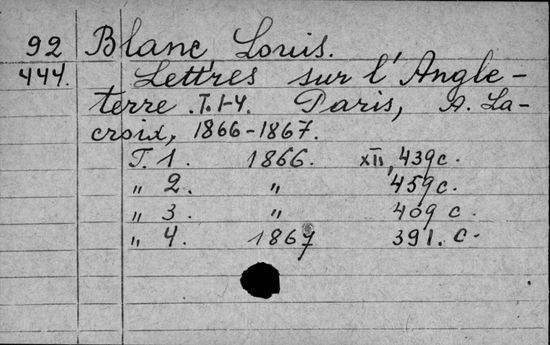 92 Blanc, Louis.
444. Lettres sur l'Angle-
terre. T. 1-4. Paris, A. La-
croix, 1866-1867.
T. 1. 1866. XII, 439 c.
" 2. " 459 c.
" 3. " 409 c.
" 4. 1867 391. c.